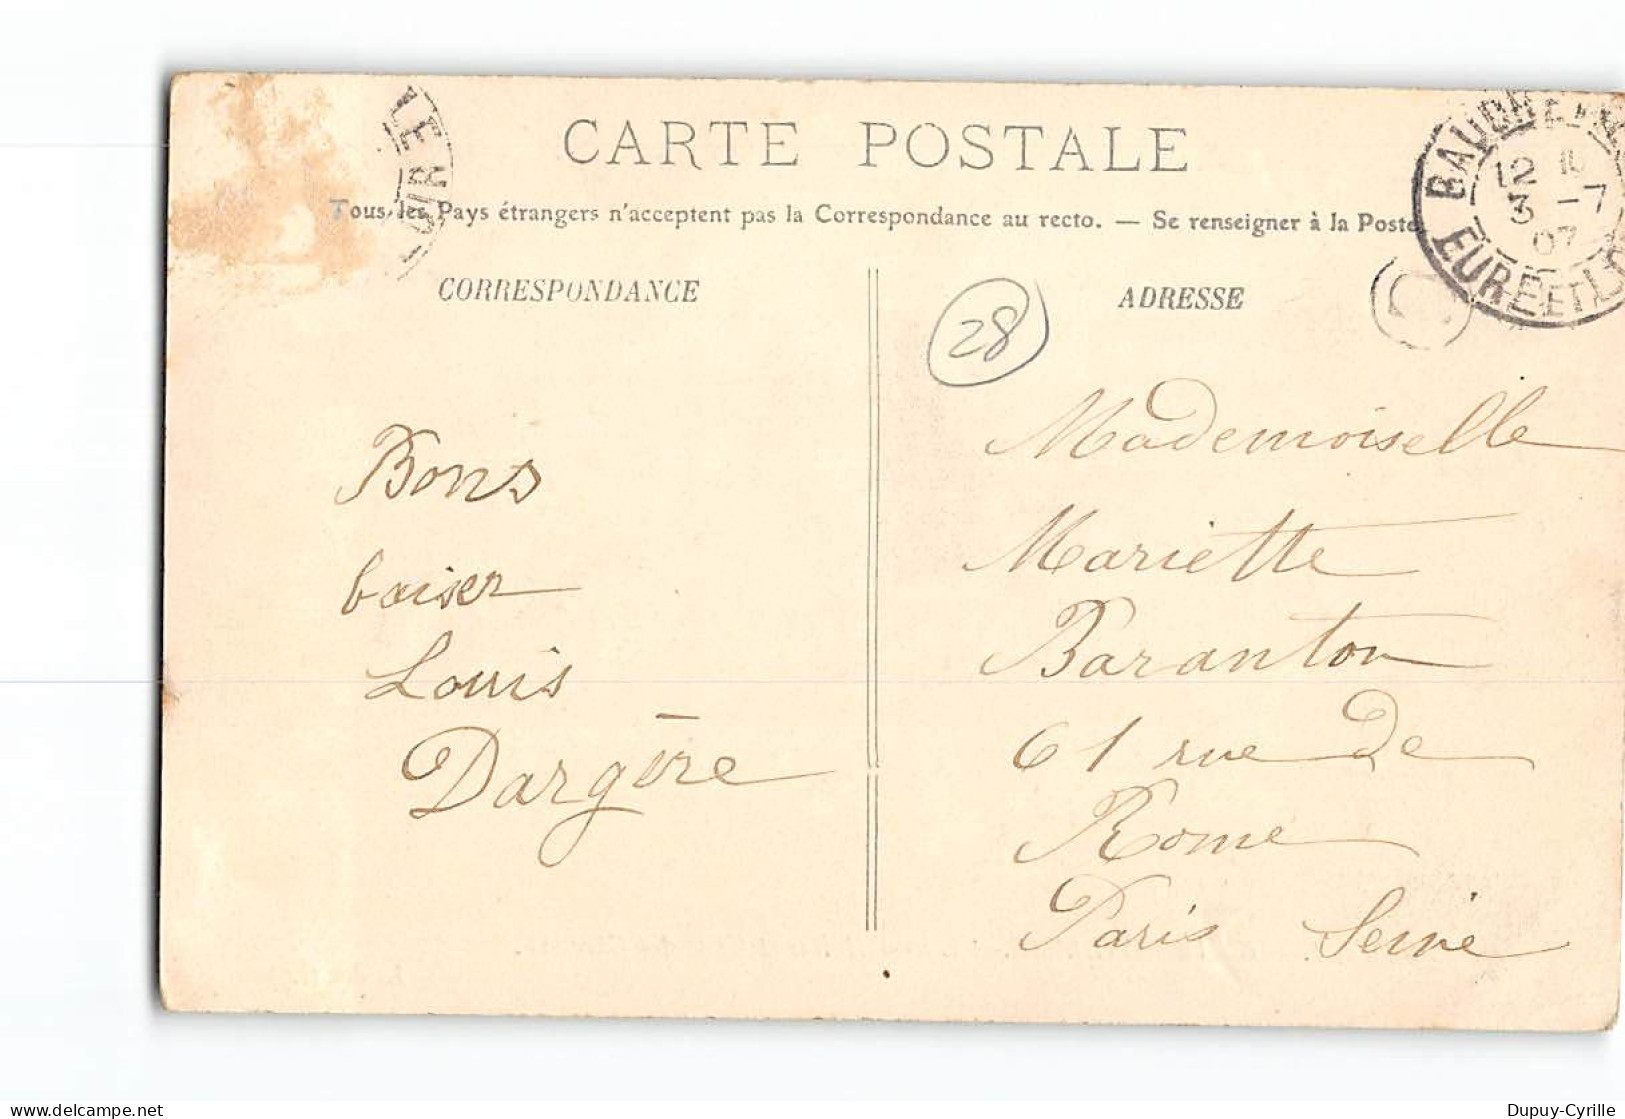 CARTE POSTALE
Tous les Pays étrangers n'acceptent pas la Correspondance au recto. — Se renseigner à la Poste
CORRESPONDANCE
Bons
baiser
Louis
Dargère
ADRESSE
28
Mademoiselle
Mariette
Baranton
61 rue de
Rome
Paris Seine
12
3 -7
07
EURE ET
Dupuy-Cyrille